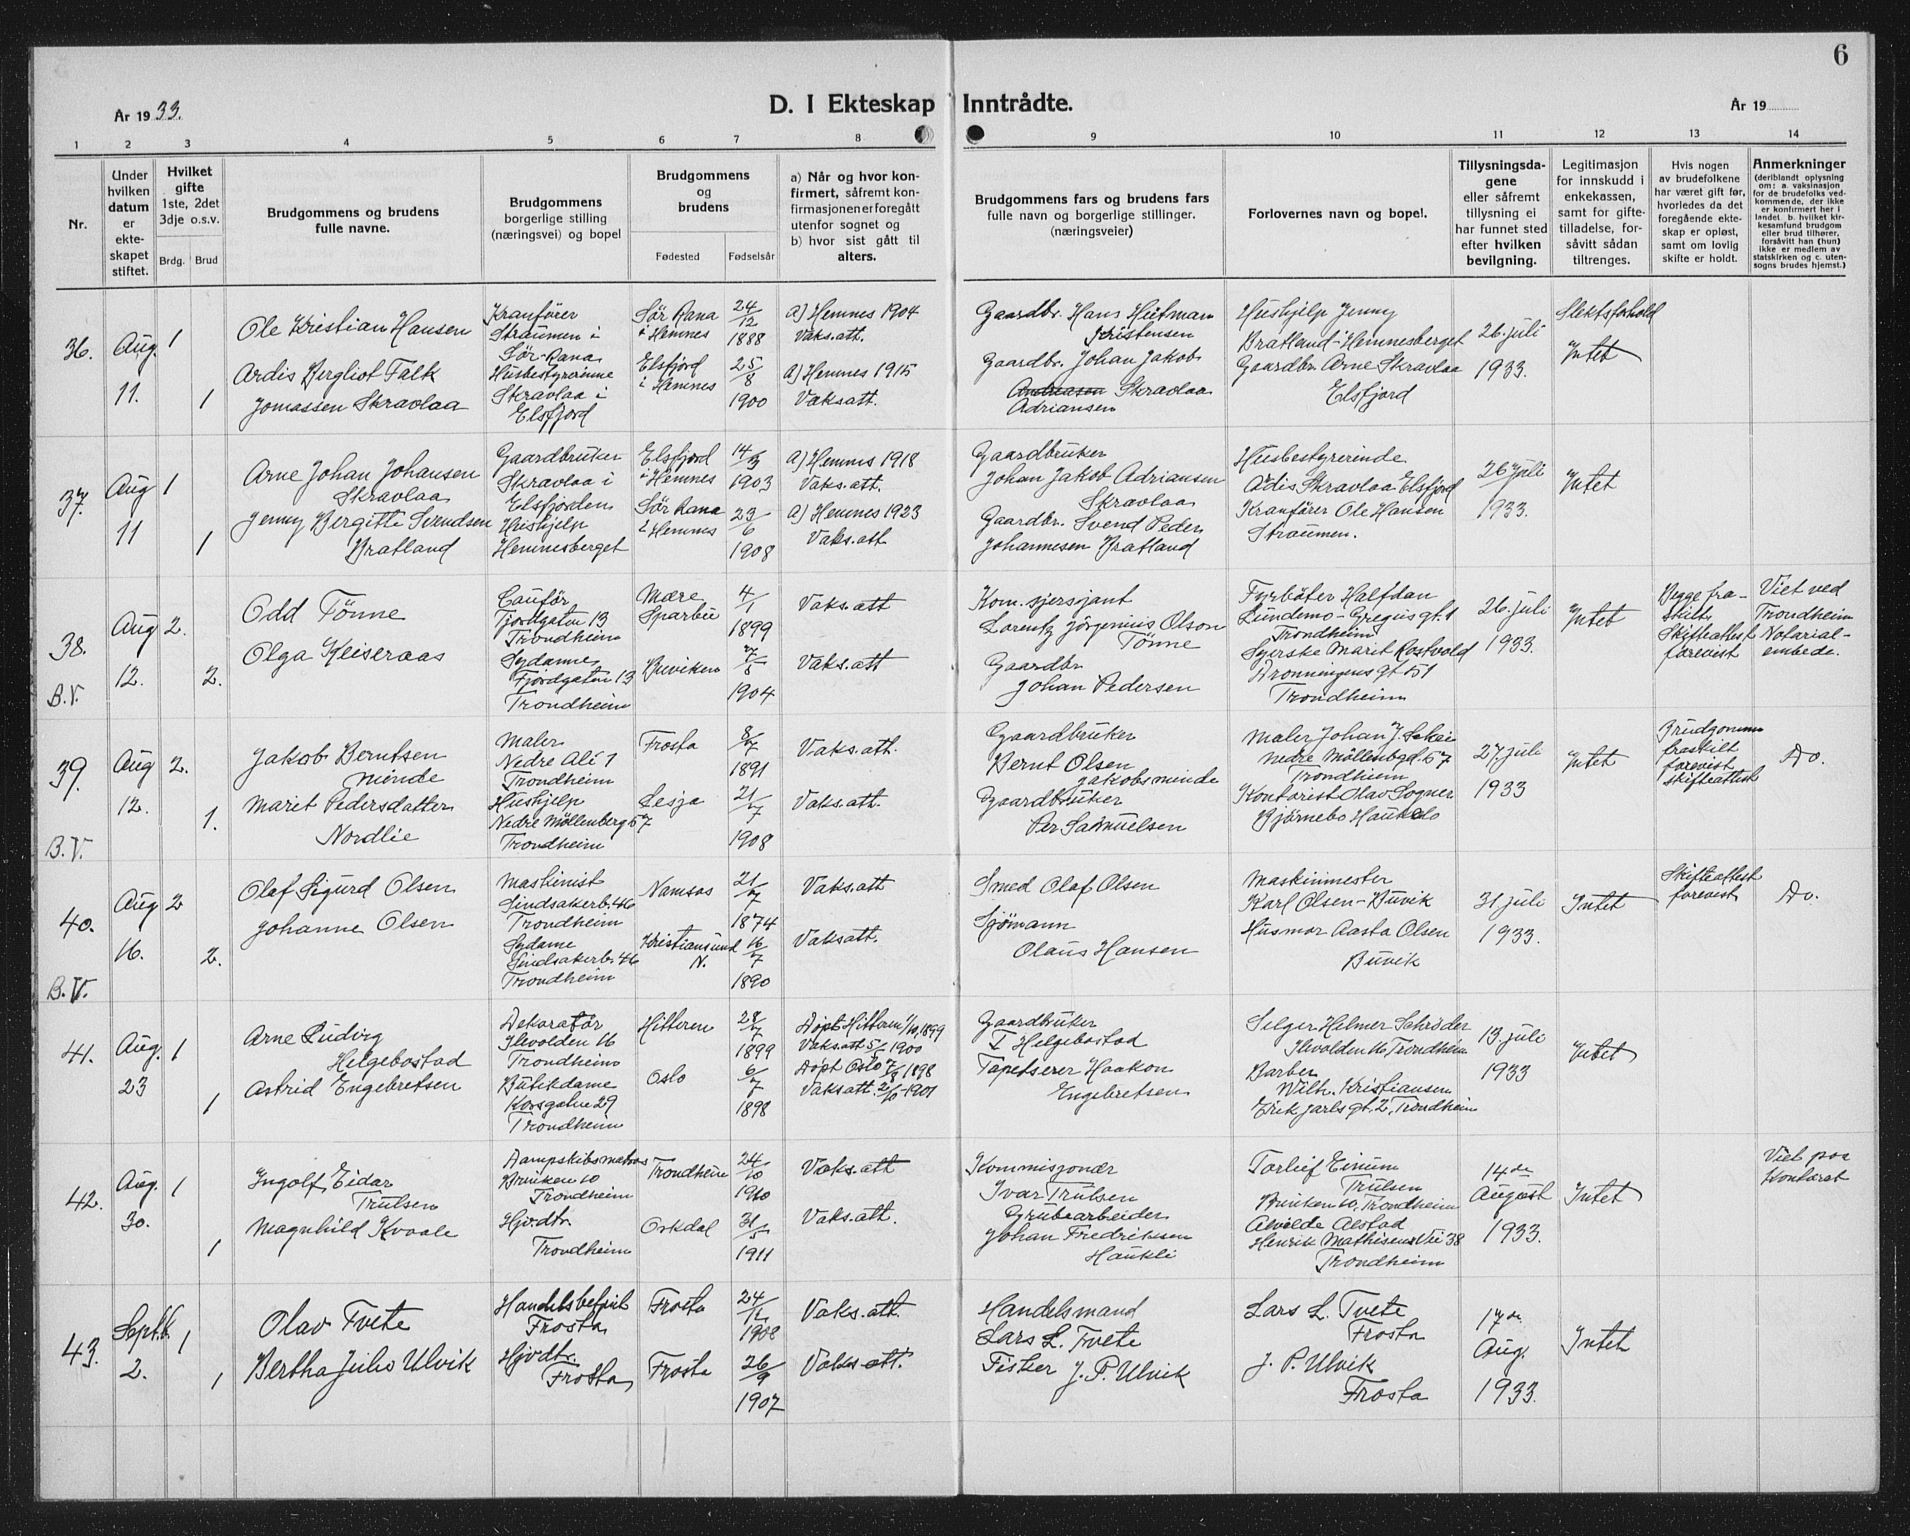 6
År 1933.
D. I Ekteskap Inntrådte.
År 19
1 2 3 4 5 6 7 8 9 10 11 12 13 14
Nr.
Under hvilken datum er ekte-skapet stiftet.
Hvilket gifte 1ste, 2det 3dje o.s.v.
Brdg. Brud
Brudgommens og brudens fulle navne.
Brudgommens borgerlige stilling (næringsvei) og bopel
Brudgommens og brudens
Fødested Fødselsår
a) Når og hvor kon-firmert, såfremt kon-firmasjonen er foregått utenfor sognet og b) hvor sist gått til alters.
Brudgommens fars og brudens fars fulle navn og borgerlige stillinger. (næringsveier)
Forlovernes navn og bopel.
Tillysningsda-gene eller såfremt tillysning ei har funnet sted efter hvilken bevilgning.
Legitimasjon for innskudd i enkekassen, samt for gifte-tilladelse, for-såvitt sådan tiltrenges.
Hvis nogen av brudefolkene har været gift før, hvorledes da det foregående ekte-skap er opløst, samt om lovlig skifte er holdt.
Anmerkninger (deriblandt oplysning om: a. vaksinasjon for de brudefolks ved-kommende, der ikke er konfirmert her i landet. b. hvilket kir-kesamfund brudgom eller brud tilhører, forsåvitt han (hun) ikke er medlem av statskirken og c. uten-sogns brudes hjemst.)
36.
Aug. 11.
1
1
Ole Kristian Hansen
Ardis Bergliot Falk
Jomassen Skravlaa
Kranfører
Straumen i
Sør-Rana
Husbestyrerinne
Skravlaa i
Elsfjord
Sør Rana
i Hemnes
Elsfjord
i Hemnes
24/12 1888
25/8 1900
a) Hemnes 1904
Vaks.att.
a) Hemnes 1915
Vaks.att.
Gaardbr. Hans Heitman
Kristensen
Gaardbr. Johan Jakob
Skravlaa
Adriansen
Hushjelp Jenny
Bratland-Hemnesberget
Gaardbr. Arne Skravlaa
Elsfjord
26. juli
1933.
Slektsforhold
Intet
37.
Aug 11
1
1
Arne Johan Johansen
Skravlaa
Jenny Bergitte Svendsen
Bratland
Gaardbruker
Skravlaa i
Elsfjorden
Hushjelp
Hemnesberget
Elsfjord
i Hemnes
Sør Rana
i Hemnes
14/3 1903
23/6 1908
a) Hemnes 1918
Vaks.att.
a) Hemnes 1923
Vaks.att
Gaardbruker
Johan Jakob Adriansen
Skravlaa
Gaardbr. Svend Peder
Johannesen Bratland
Husbestyrerinde
Ardis Skravlaa Elsfjord
Kranfører Ole Hansen
Straumen.
26 juli
1933.
Intet
38.
B.V.
Aug 12.
2.
2.
Odd Tönne
Olga Keiseraas
Fjordgaten 13
Trondheim
Sydame
Fjordgaten 13
Trondheim
Mære
Sparbu
Buviken
4/1 1899
7/5 1904
Vaks.att
Vaks.att
Kom. sjersjant
Lorentz Jörgenius Olson
Tönne
Gaardbr
Johan Pedersen
Fyrböter Halfdan
Lundemo-Gregus gt. 1
Trondheim
Syerske Marit Rostvold
Dronningens gt 51
Trondheim
26. juli
1933.
Intet
Begge fra-
skilt.
Skifteattest
forevist
Viet ved
Trondheim
Notarial-
embede.
39.
B.V.
Aug 12.
2.
1.
Jakob Berntsen
minde
Marit Pedersdatter
Nordlie
Maler
Nedre Ali 1
Trondheim
Hushjelp
Nedre Møllenberg 57
Trondheim
Frosta
Lesja
8/7 1891
21/7 1908
Vaks.att.
Vaks.att.
Gaardbruker
Bernt Olsen
Jakobsminde
Gaardbruker
Per Samuelsen
Maler Johan J.
Nedre Möllenbgd. 57
Trondheim
Kontorist Olav Sogner
Bjørnebo Haukedo
27. juli
1933
Intet
Brudgommen
fraskilt
forevist
skifteattest
Do.
40.
B.V.
Aug 16.
2
2.
Olaf Sigurd Olsen
Johanne Olsen
Maskinist
Lindsakerb. 46
Trondheim
Sydame
Lindsakerb. 46
Trondheim
Namsos
Kristiansund
N.
21/7 1874
16/7 1890
Vaks.att
Vaks.att.
Smed Olaf Olsen
Sjömann
Olaus Hansen
Maskinmester
Karl Olsen-Buvik
Husmor Aasta Olsen
Buvik
31 juli
1933.
Intet
Skifteattest
forevist
Do.
41.
Aug. 23
1
1
Arne Ludvig
Helgebostad
Astrid Engebretsen
Dekoratør
Ilevolden 16
Trondheim
Butikdame
Korsgaten 29
Trondheim
Hitteren
Oslo
28/7 1899
6/7 1898
Döpt Hitteren 1/10 1899
Vaksatt 5/ 1900
Döpt Oslo 7/8 1898
Vaksatt. 2/10-1901
Gaardbruker
I Helgebostad
Tapetserer Haakon
Engebretsen
Selger Helmer Schrøder
Ilevolden 16, Trondheim
Barber
Wilh. Kristiansen
Erik jarls gt. 2, Trondheim
13. juli
1933
Intet
42.
Aug. 30.
1
1
Ingolf Eidar
Trulsen
Magnhild Kvaale
Dampskibsmatros
Bruken 10
Trondheim
Hjvdtr.
Trondheim
Trondheim
Orkdal
24/10 1910
31/5 1911
Vaks.att
Vaks.att.
Kommisjonær
Ivar Trulsen
Grubearbeider
Johan Fredriksen
Haukli
Torleif Einum
Trulsen
Bruken 10, Trondheim
Alvilde Alstad
Henrik Mathisens Vei 38
Trondheim
14de
August
1933.
Intet
Viet paa
Kontoret
43.
Septb. 2.
1
1
Olav Tvete
Bertha Julie Ulvik
Handelsbetjent
Frosta
Hjvdtr.
Frosta
Frosta
Frosta
24/12 1908
26/9 1907
Vaks.att.
Vaks.att.
Handelsmand
Lars L. Tvete
Fisker J. P. Ulvik
Lars L. Tvete
Frosta
J. P. Ulvik
Frosta
17de
Aug.
1933.
Intet